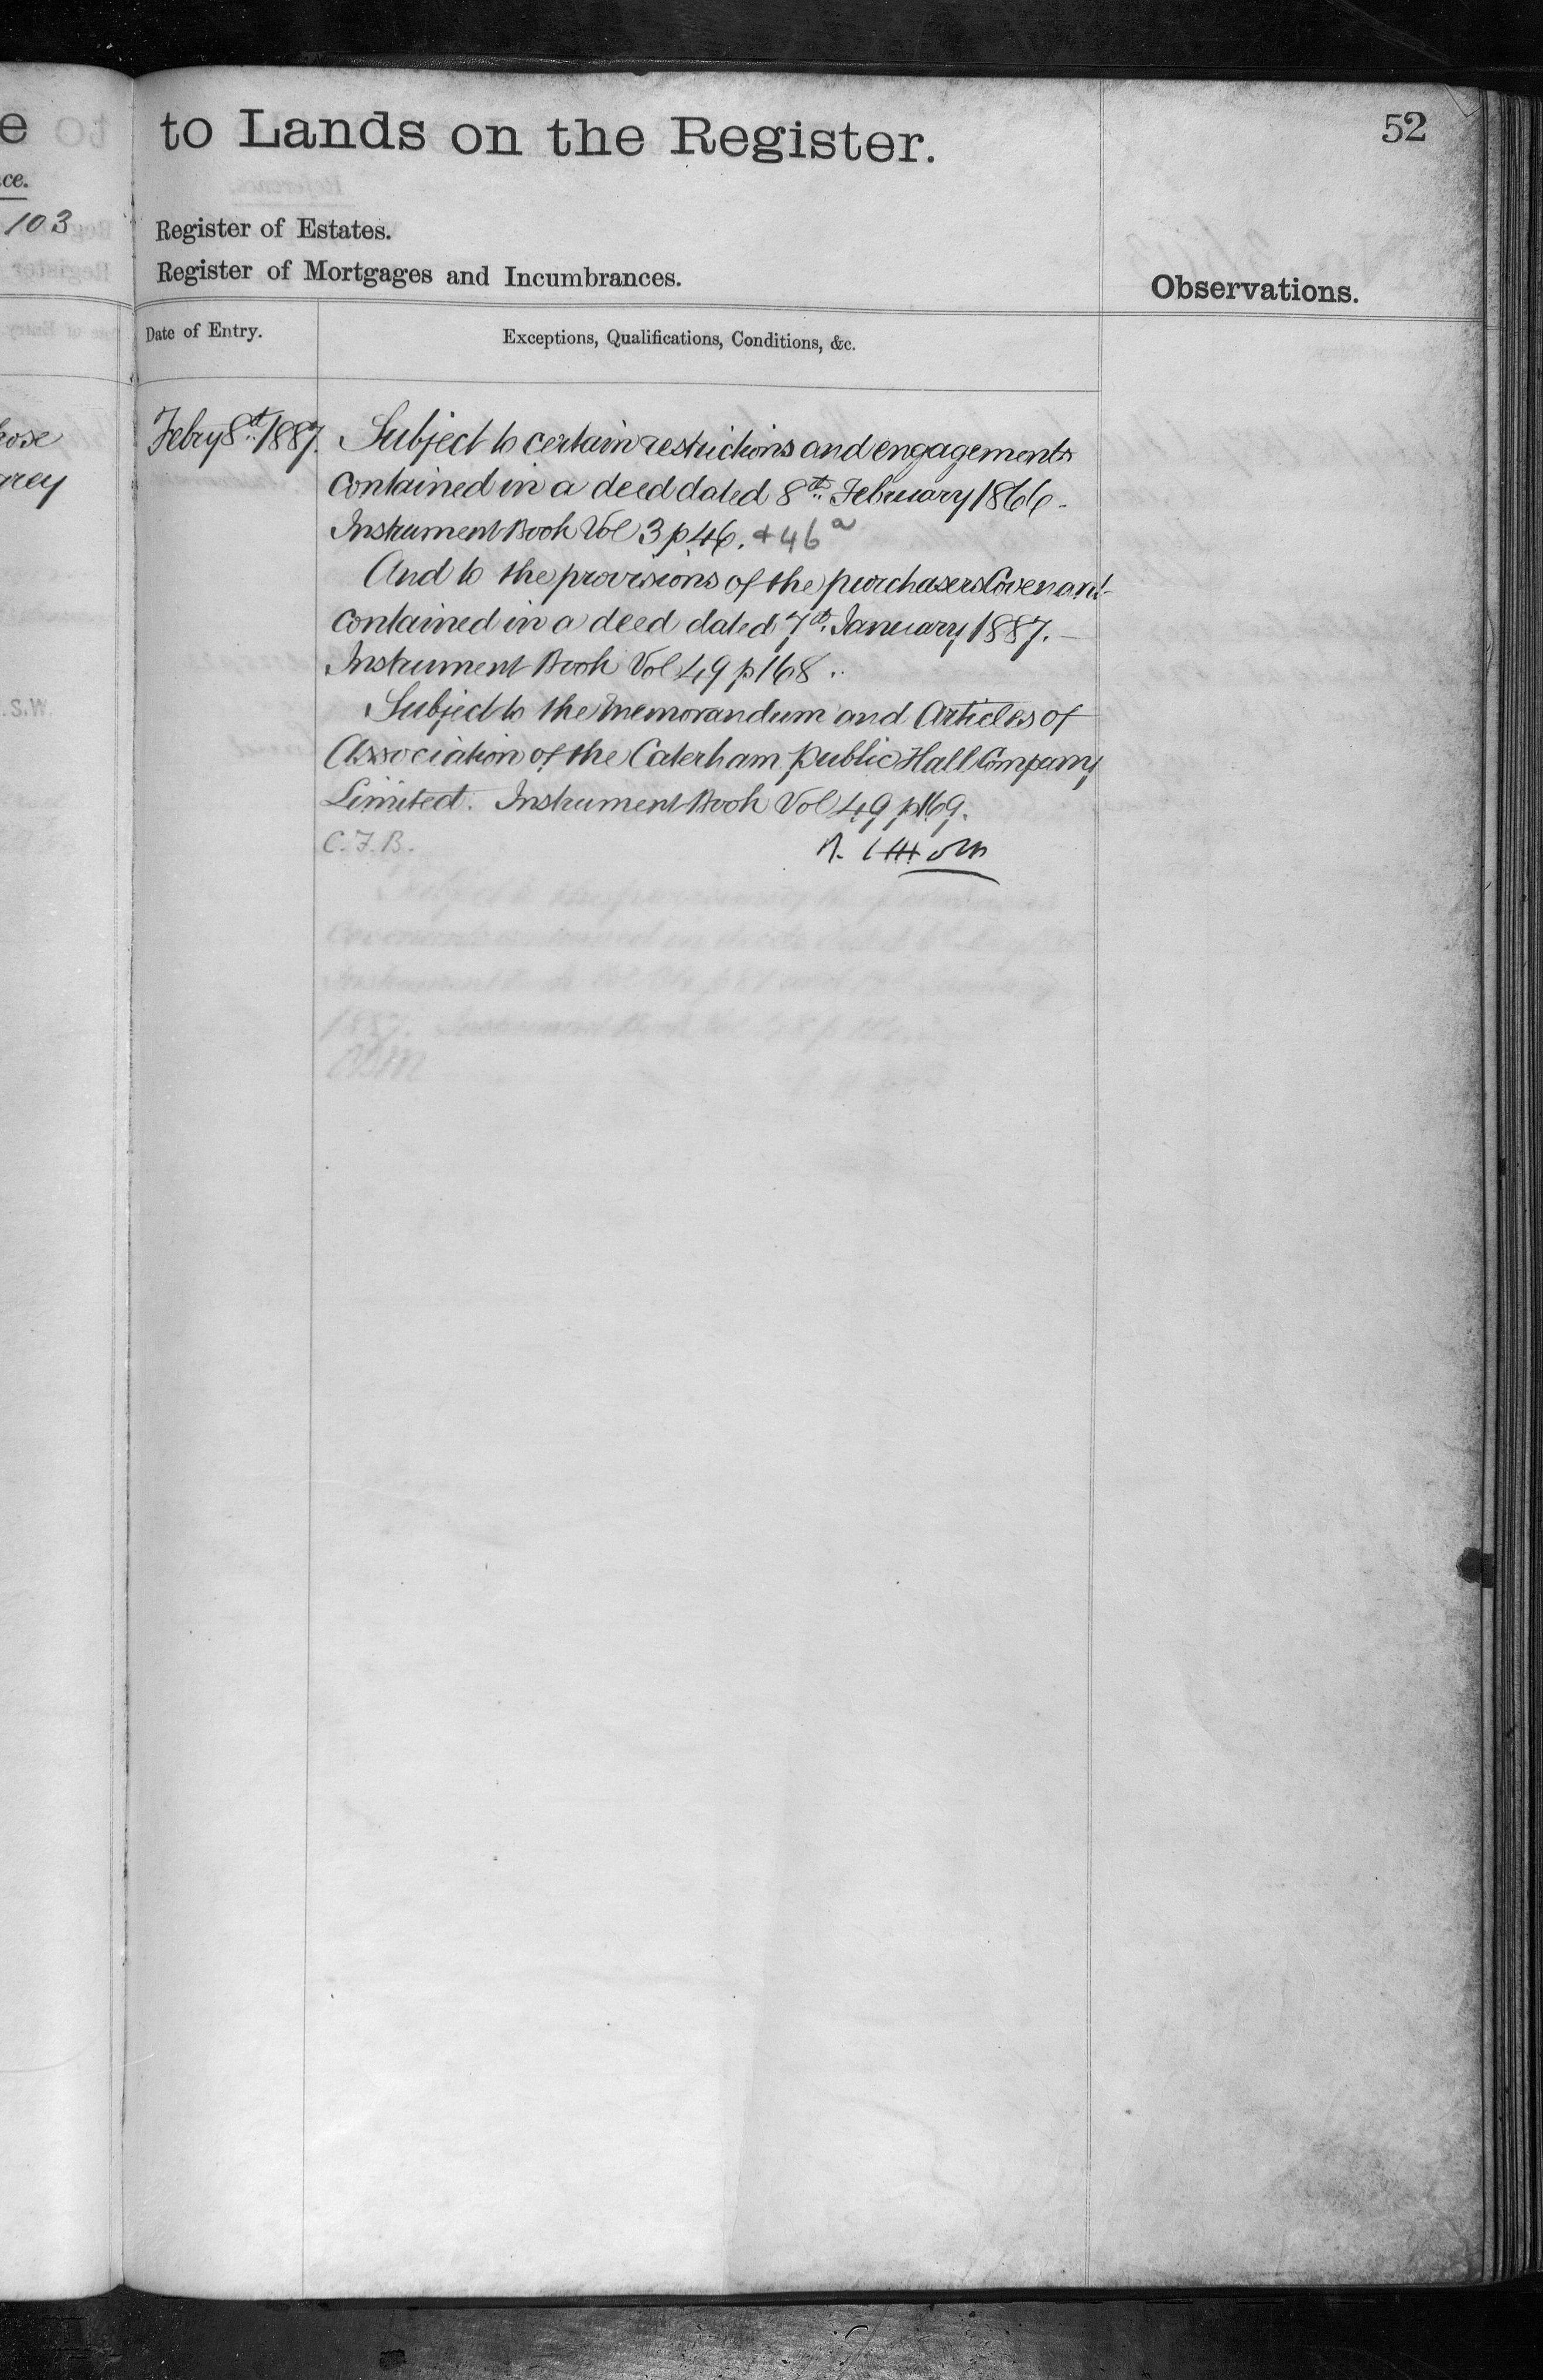 to Lands on the Register.
52
103
Register of Estates.
Register of Mortgages and Incumbrances.
Observations.
Date of Entry.
Exceptions, Qualifications, Conditions, &c.
Febry 8th 1887. Subject to certain restrictions and engagements
contained in a deed dated 8th February 1866.
Instrument Book Vol 3 p 46. & 46a
And to the provisions of the purchasers Covenant
contained in a deed dated 7th January 1887.
Instrument Book Vol 49 p 168.
Subject to the Memorandum and Articles of
Association of the Caterham Public Hall Company
Limited. Instrument Book Vol 49 p 169.
C.F.B.